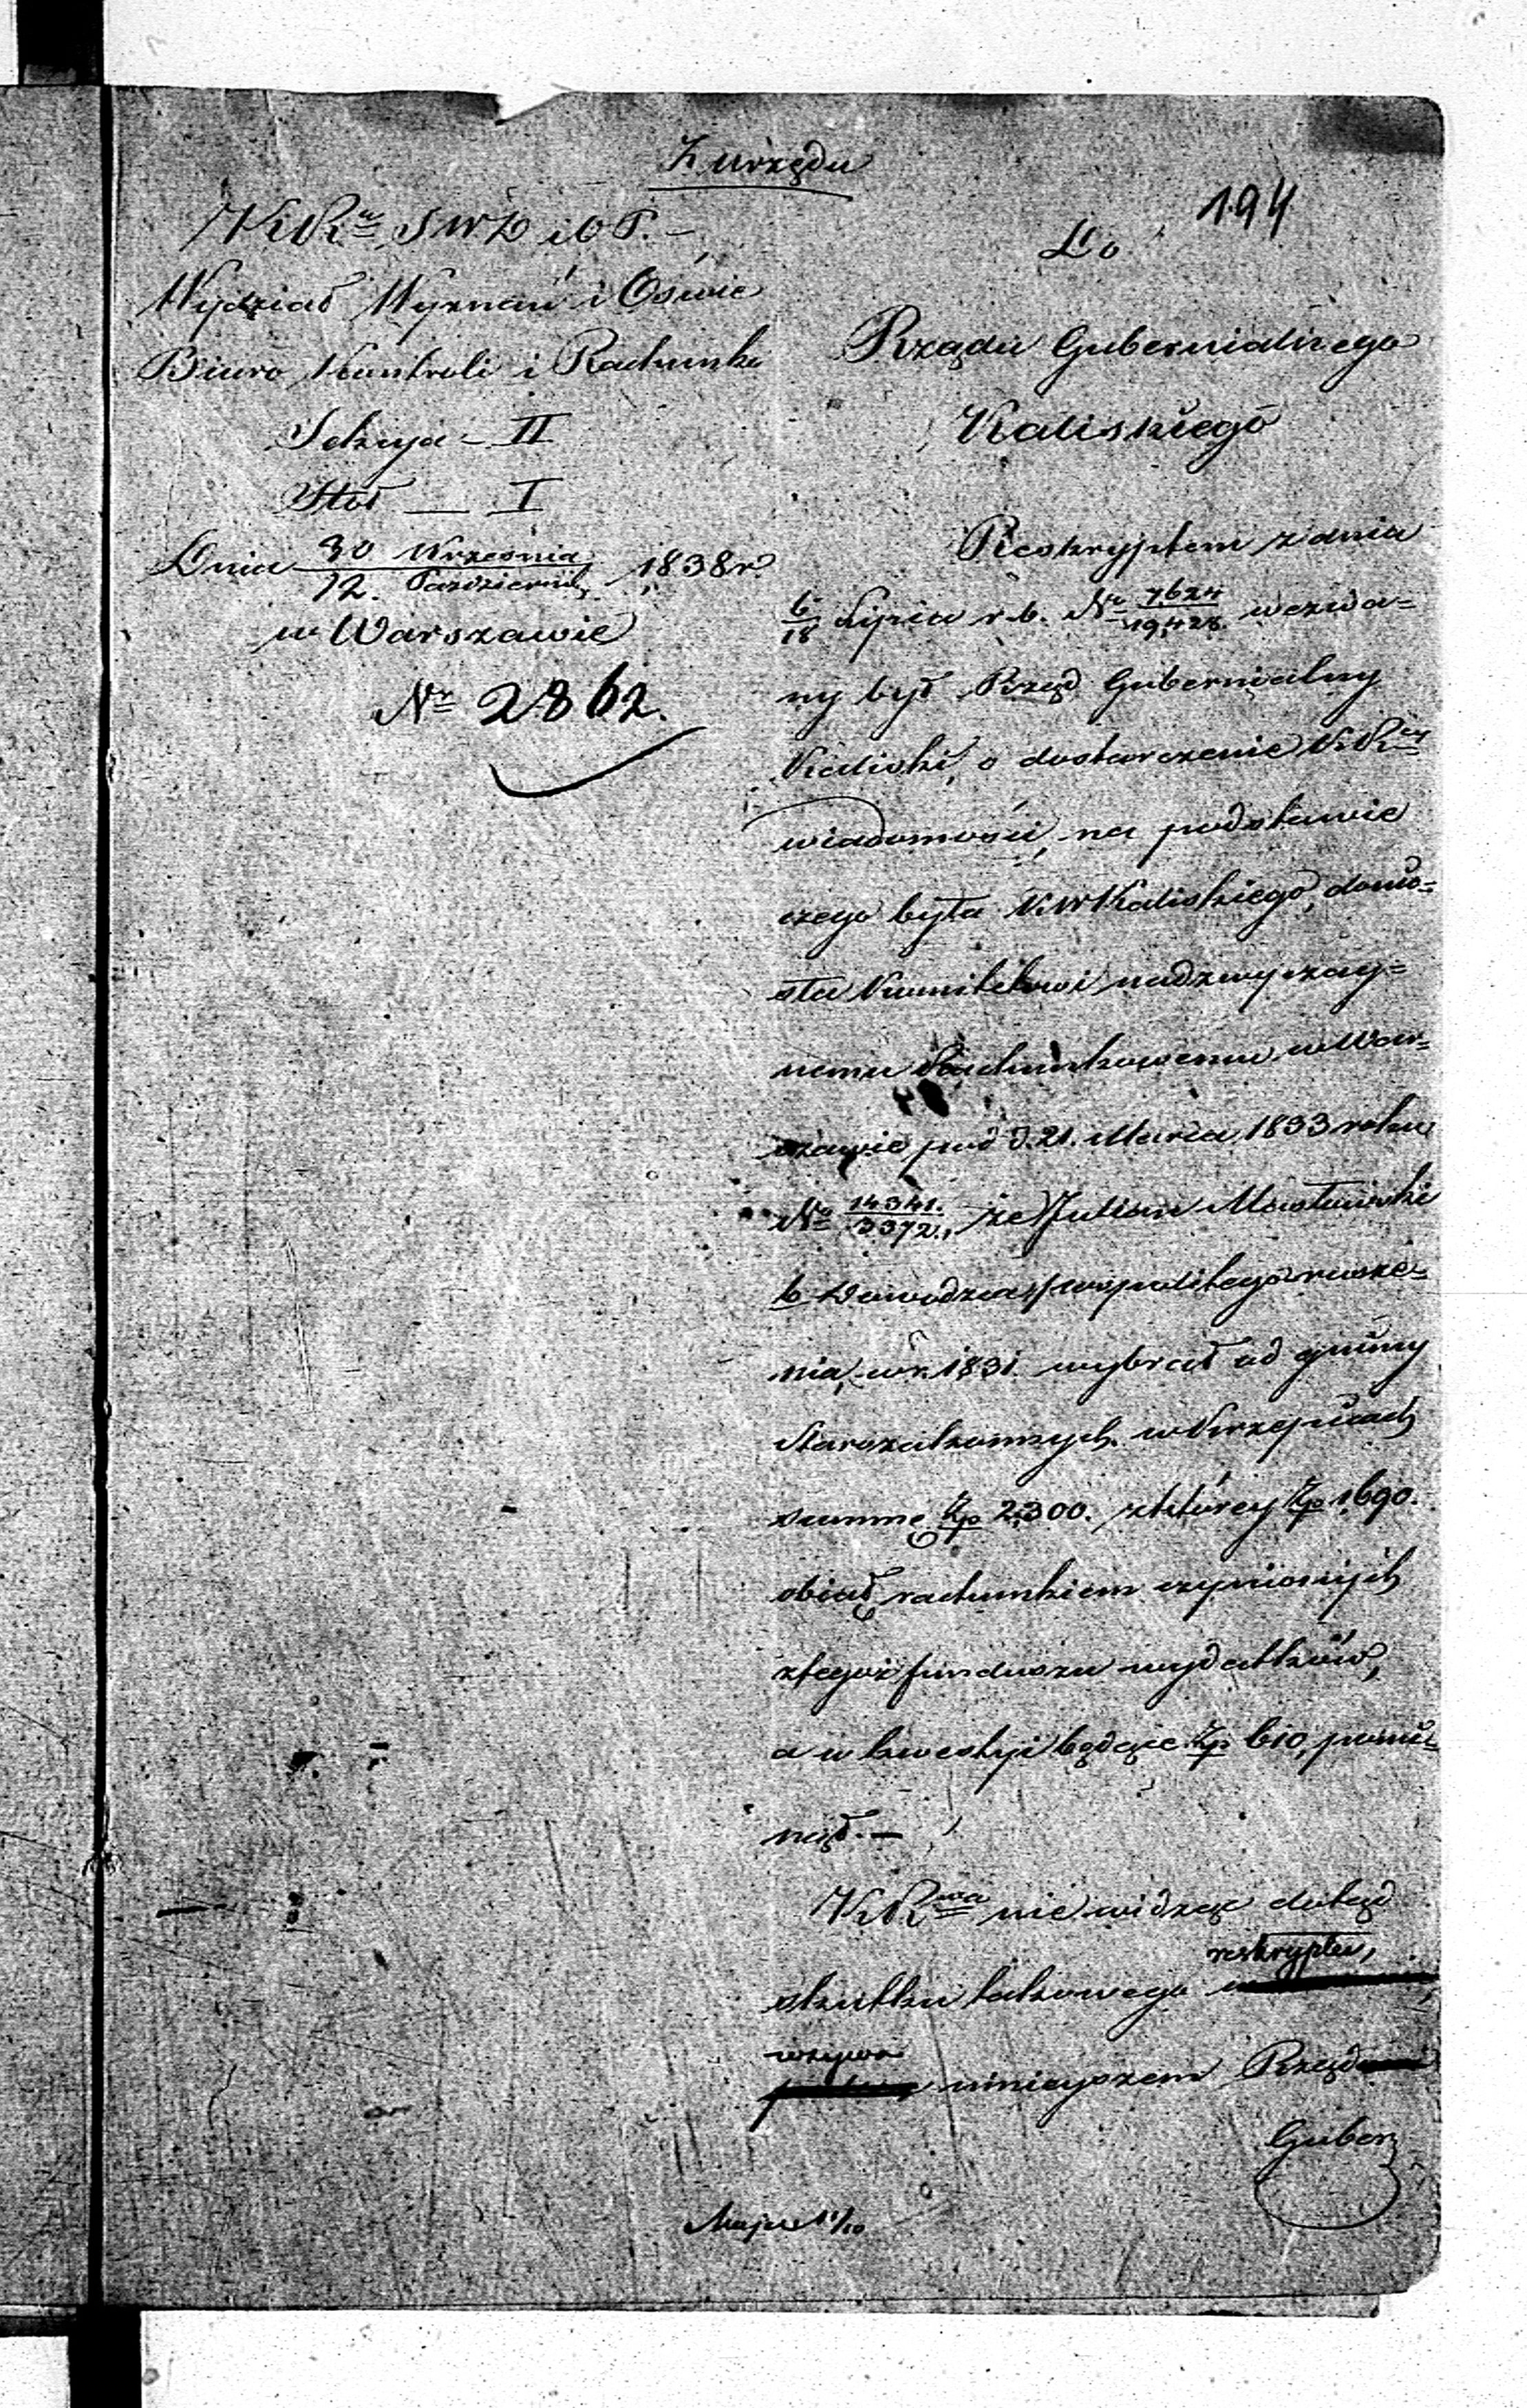 Z urzędu
194
K.R.u S W D i O P.
Wydział Wyznań i Oświe
Biuro Kontroli i Rachunko
Sekcya – II
Stoł — I
Dnia 30 Września / 12. Październik 1838 r.
w Warszawie
Nr 2862.
Do
Rządu Gubernialnego
Kaliskiego
Reskryptem z dnia
6/18 Lipca r. b. No 7624/19,428. wezwa=
ny był Rząd Gubernialny
Kaliski, o dostarczenie K.R.
wiadomości, na podstawie
czego była K.W Kaliskiego, donio=
sła Komitetowi nadzwyczay=
nemu Rachunkowemu w War=
szawie pod d. 21. Marca 1833 roku
No 14341./3372., że Julian
b. Dowódzca pospolitego rusze=
nia, w r. 1831. wybrał od gminy
Starozakonnych w Krzepicach
summę Zp 2,300. z którey Zp 1,690.
obiął rachunkiem czynionych
z tegoż funduszu wydatków,
a w kwestyi będące Zp 610, pomi=
nął. —
K.R.wa nie widząc dotąd
reskryptu,
skutku takowego
wzywa
ninieyszem Rząd
Guber